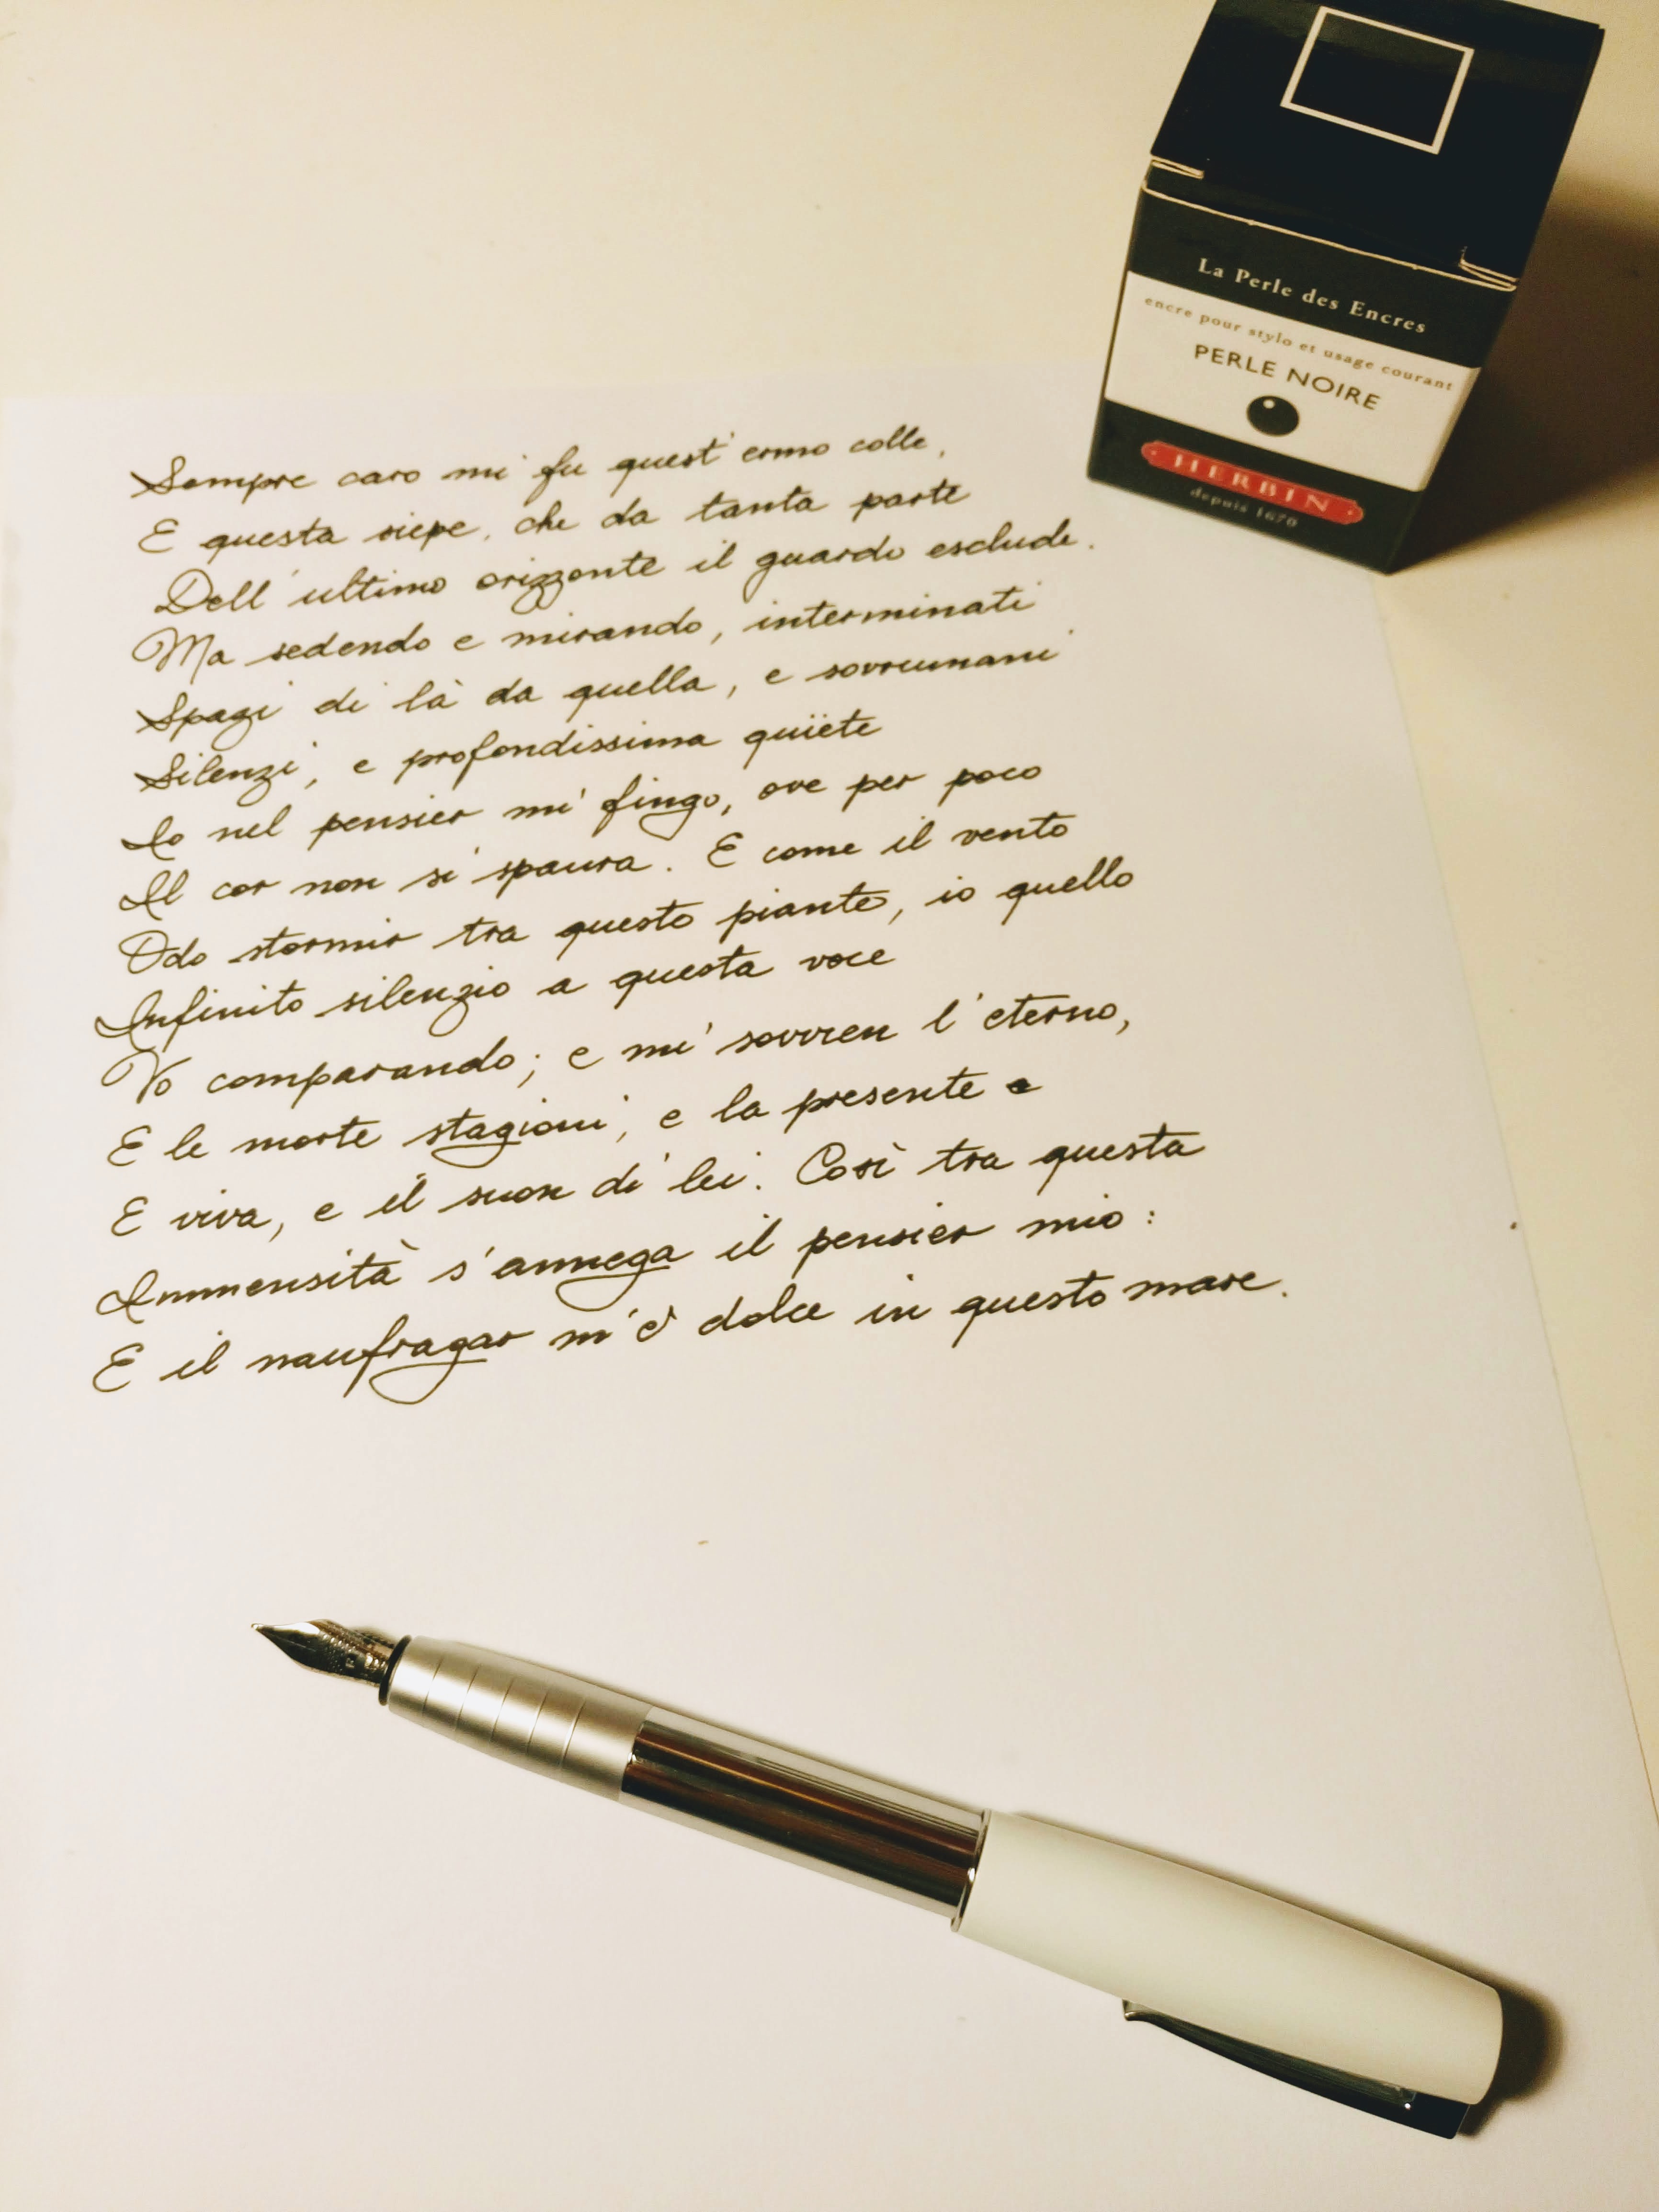 La Perle des Encres
encre pour stylo et usage courant
PERLE NOIRE
HERBIN
depuis 1670
Sempre caro mi fu quest'ermo colle,
E questa siepe, che da tanta parte
Dell'ultimo orizzonte il guardo esclude.
Ma sedendo e mirando, interminati
Spazi di là da quella, e sovrumani
Silenzi, e profondissima quïete
Io nel pensier mi fingo, ove per poco
Il cor non si spaura. E come il vento
Odo stormir tra queste piante, io quello
Infinito silenzio a questa voce
Vo comparando; e mi sovvien l'eterno,
E le morte stagioni, e la presente
E viva, e il suon di lei. Così tra questa
Immensità s'annega il pensier mio:
E il naufragar m'è dolce in questo mare.